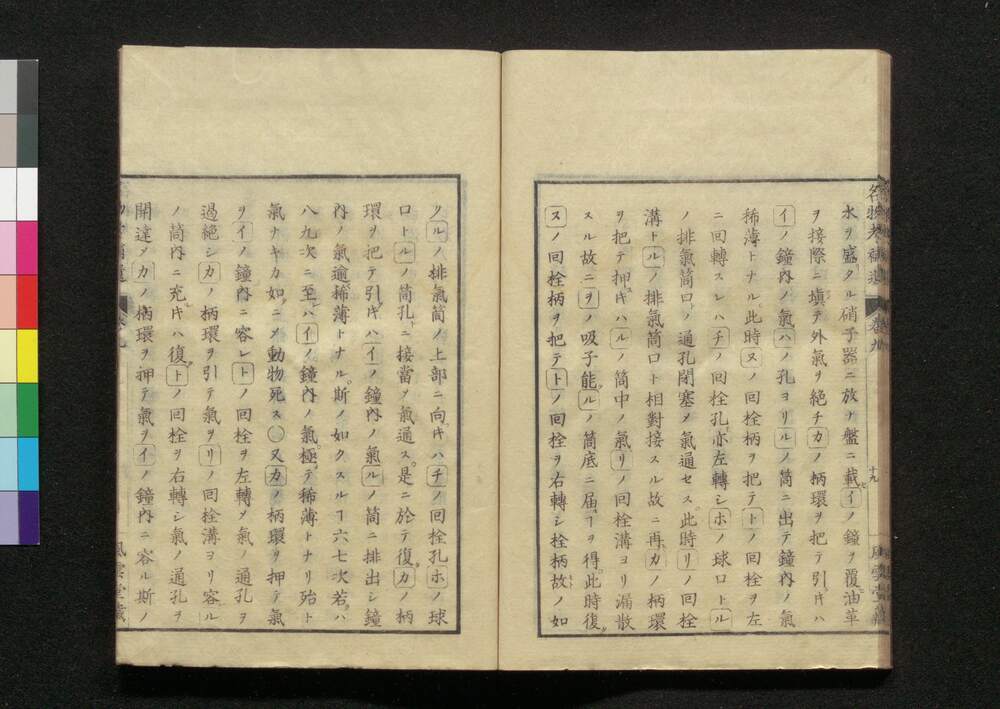 水ヲ盛タル硝子器ニ放ナ盤ニ載イノ鐘ヲ覆油革
ヲ接際ニ塡テ外氣ヲ絶チカノ柄環ヲ把テ引キハ
イノ鐘內ノ氣ハノ孔ヨリルノ筒ニ出テ鐘內ノ氣
稀薄トナル此時ヌノ回栓柄ヲ把テトノ回栓ヲ左
ニ回轉スレハチノ回栓孔亦左轉シホノ球口トル
ノ排氣筒口ノ通孔閉塞メ氣通セス此時リノ回栓
溝トルノ排氣筒口ト相對接スル故ニ再カノ柄環
ヲ把テ押キハルノ筒中ノ氣リノ回栓溝ヨリ漏散
スル故ニヲノ吸子能ルノ筒底ニ届ヿヲ得此時復
ヌノ回栓柄ヲ把テトノ回栓ヲ右轉シ栓柄故ノ如
十九
クルノ排氣筒ノ上部ニ向キハチノ回栓孔ホノ球
口トルノ筒孔ニ接當ヲ氣通ス是ニ於テ復カノ柄
環ヲ把テ引キハイノ鐘內ノ氣ルノ筒ニ排出シ鐘
內ノ氣逾稀薄トナル斯ノ如クスルヿ六七次若ハ
八九次ニ至ハイノ鐘內ノ氣極テ稀薄トナリ殆ト
氣ナキカ如ニメ動物死ス〇又カノ柄環ヲ押テ氣
ヲイノ鐘內ニ容レトノ回栓ヲ左轉メ氣ノ通孔ヲ
過絶シカノ柄環ヲ引テ氣ヲリノ回栓溝ヨリ容ル
ノ筒內ニ充キハ復トノ回栓ヲ右轉シ氣ノ通孔ヲ
開達メカノ柄環ヲ押テ氣ヲイノ鐘內ニ容ル斯ノ